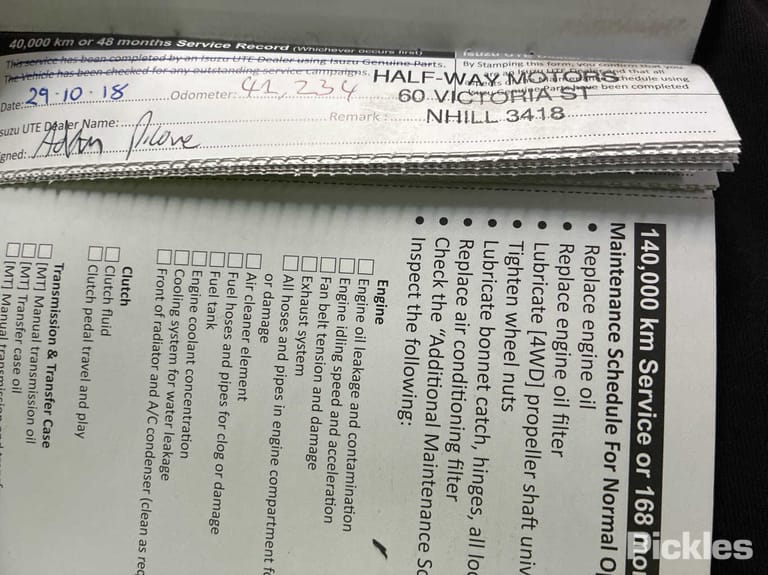 40,000 km or 48 months Service Record (Whichever occurs first)
This service has been completed by an Isuzu UTE Dealer using Isuzu Genuine Parts.
The Vehicle has been checked for any outstanding service campaigns.
Date: 29·10·18 Odometer: 41,234
Isuzu UTE Dealer Name:
Remark:
By Stamping this form, you confirm that
HALF-WAY MOTORS
60 VICTORIA ST
NHILL 3418
been completed
140,000 km Service or 168
Maintenance Schedule For Normal
• Replace engine oil
• Replace engine oil filter
• Lubricate [4WD] propeller shaft
• Tighten wheel nuts
• Lubricate bonnet catch, hinges, all
• Replace air conditioning filter
• Check the "Additional Maintenance
• Inspect the following:
Engine
Engine oil leakage and contamination
Engine idling speed and acceleration
Fan belt tension and damage
Exhaust system
All hoses and pipes in engine compartment
or damage
Air cleaner element
Fuel hoses and pipes for clog or damage
Fuel tank
Engine coolant concentration
Cooling system for water leakage
Front of radiator and A/C condenser (clean as
Clutch
Clutch fluid
Clutch pedal travel and play
Transmission & Transfer Case
[MT] Manual transmission oil
[MT] Transfer case oil
[MT] Manual transmission
Pickles